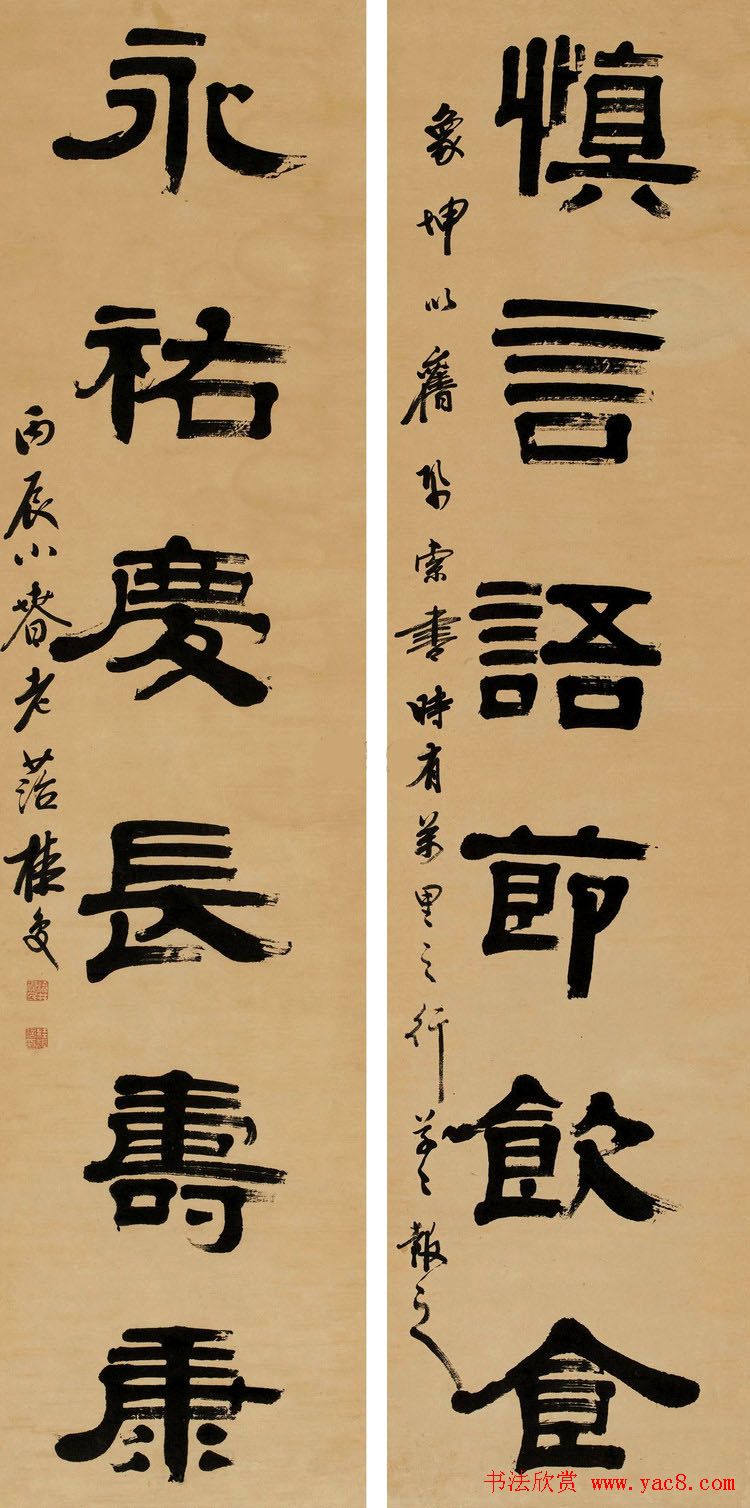 慎言語節飲食
象坤以舊紙索書時有萬里之行草〻報之
永祐慶長壽康
丙辰小春老菭桂馥
书法欣赏 www.yac8.com